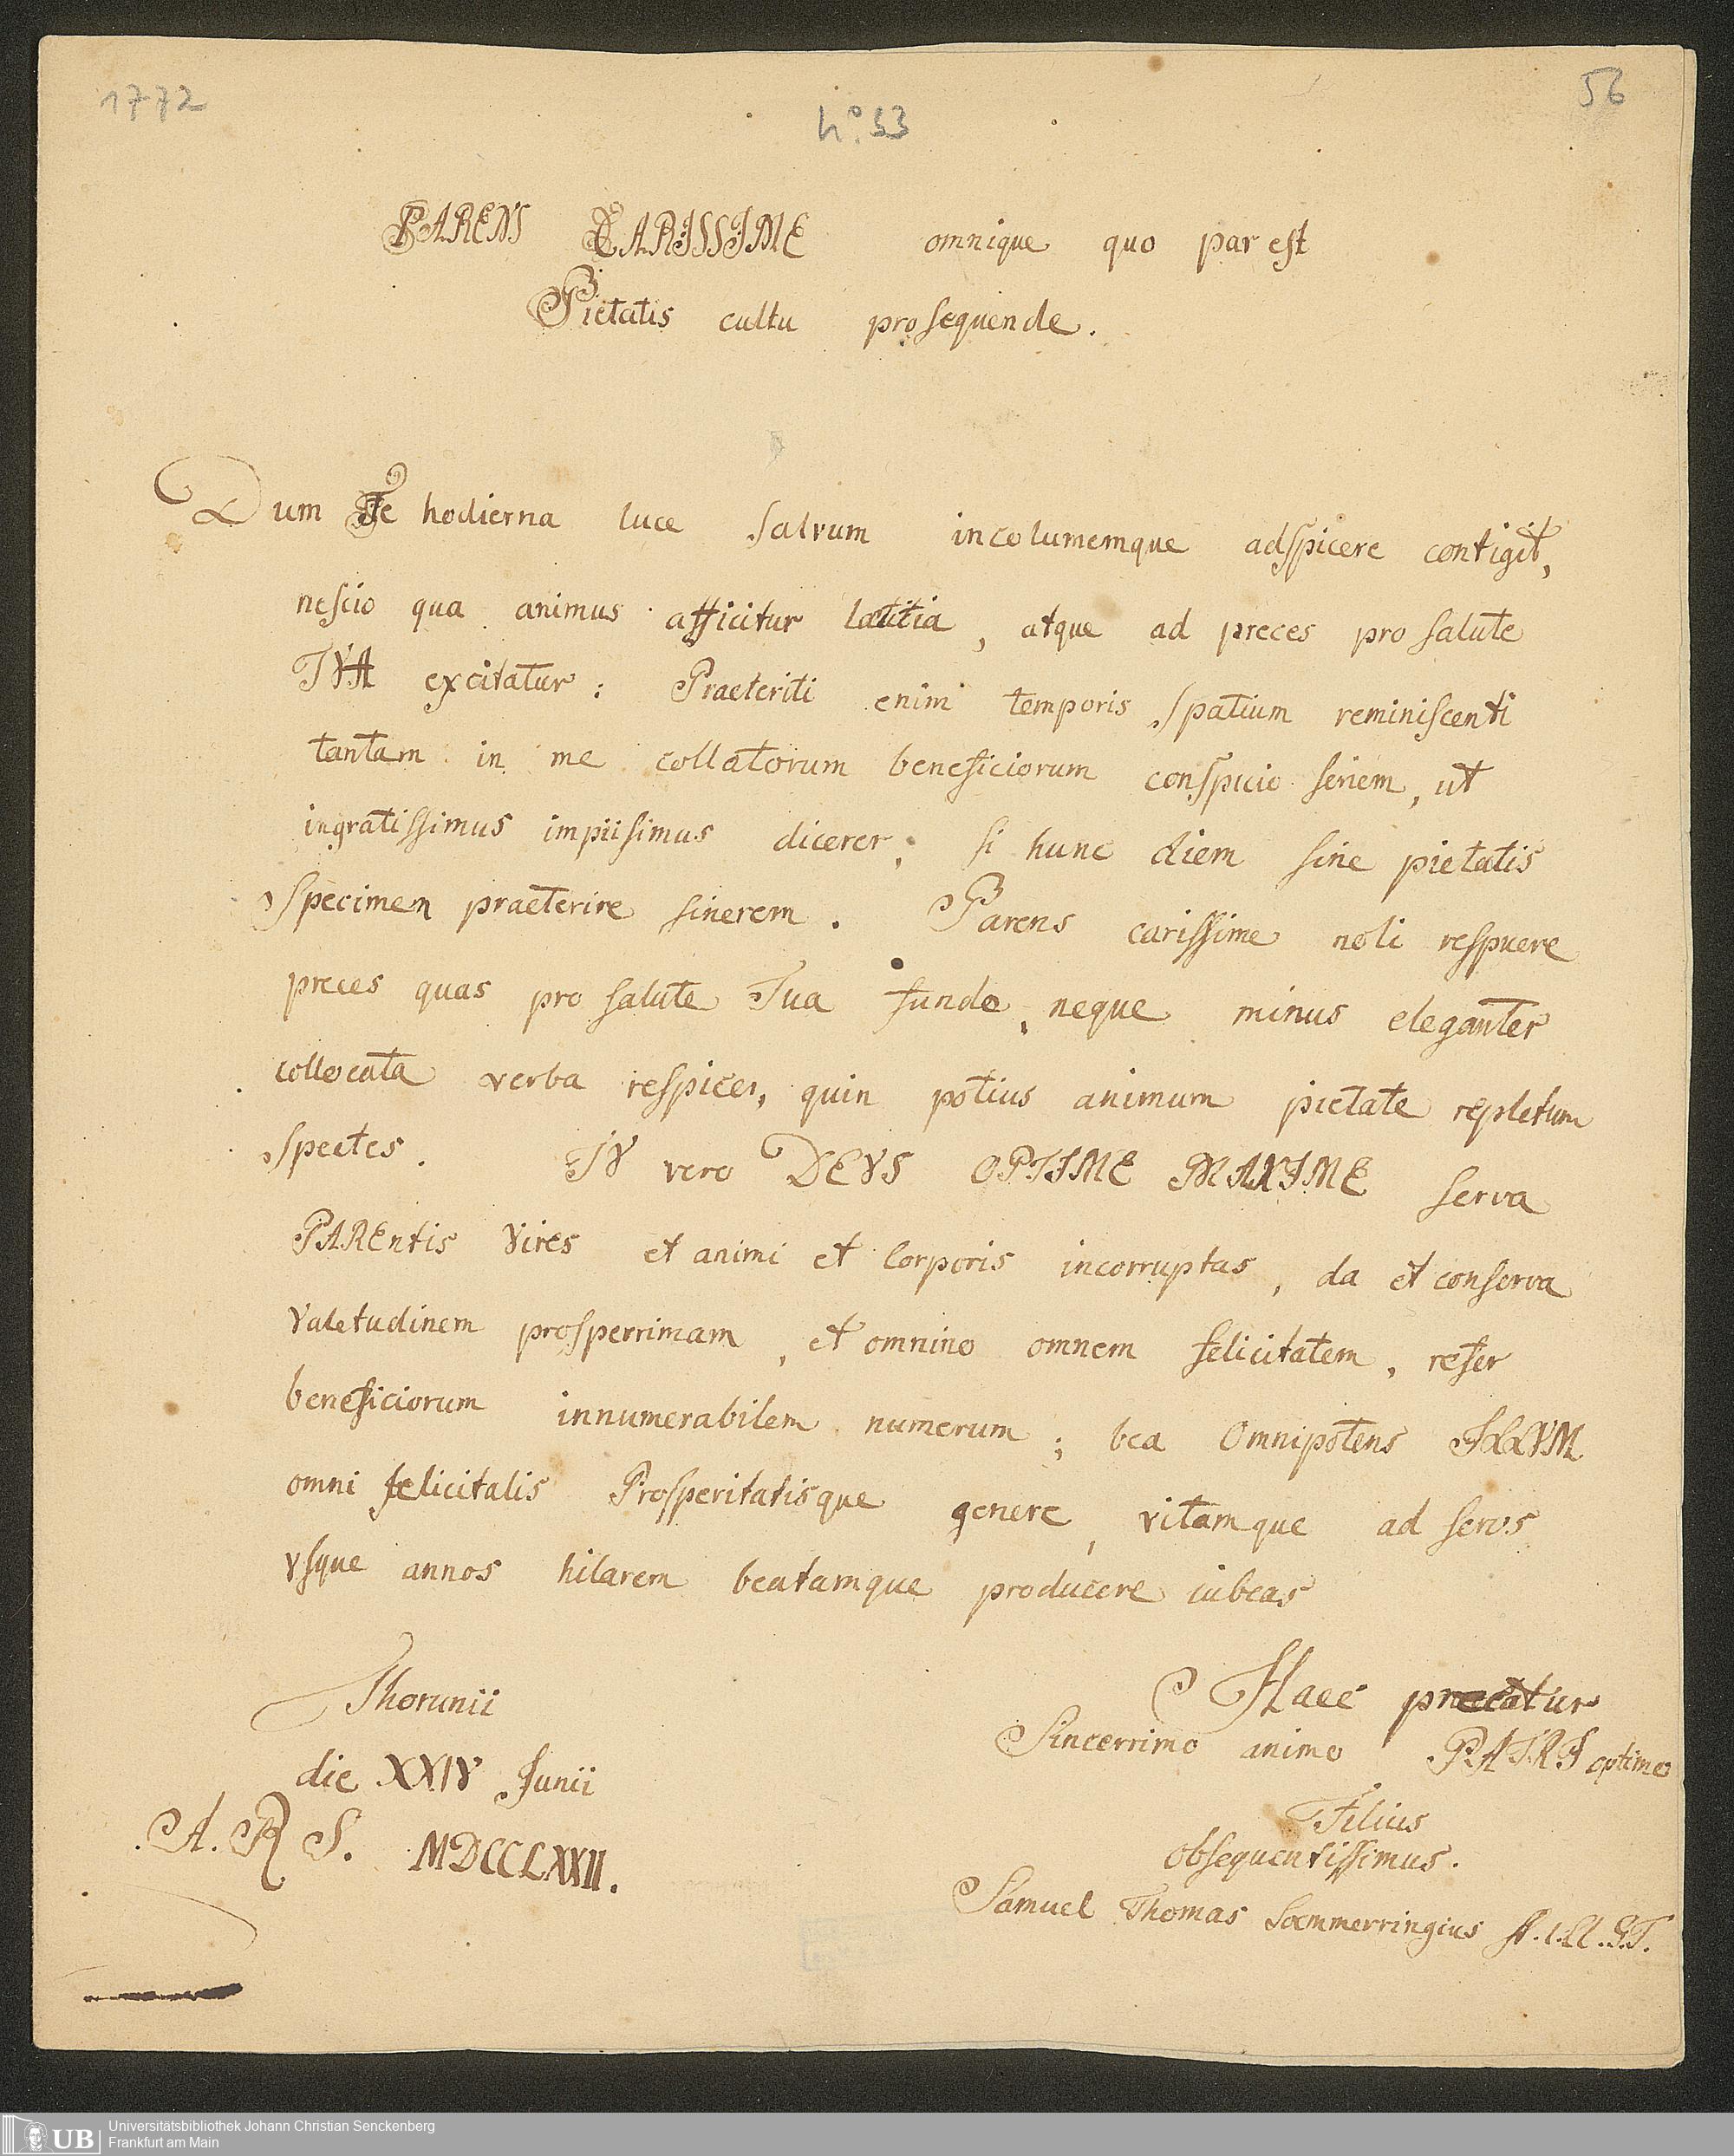 1772
56
No. 53
PARENS CARISSIME omnique quo par est
Pietatis cultu prosequende.
Dum Te hodierna luce salvum incolumemque adspicere contigit,
nescio qua animus afficitur laetitia, atque ad preces pro salute
TVA excitatur: Praeteriti enim temporis spatium reminiscenti
tantam in me collatorum beneficiorum conspicio seriem, ut
ingratissimus impiisimus dicerer, si hunc diem sine pietatis
specimen praeterire sinerem. Parens carissime noli respuere
preces quas pro salute Tua fundo, neque minus eleganter
collocata verba respicer, quin potius animum pietate repletum
spectes. TV vero DEVS OPTIME MAXIME serva
PARENtis Vires et animi et Corporis incorruptas, da et conserva
Valetudinem prosperrimam, et omnino omnem felicitatem, refer
beneficiorum innumerabilem numerum; bea Omnipotens ILLVM
omni felicitatis Prosperitatisque genere, vitamque ad seros
vsque annos hilarem beatamque producere iubeas
Thorunii
Haec precatur
Sincerrimo animo PATRI optimo
die XXIV Junii
Filius
A. R S. MDCCLXXII.
obsequentissimus.
Samuel Thomas Soemmerringius
UB
Universitätsbibliothek Johann Christian Senckenberg
Frankfurt am Main